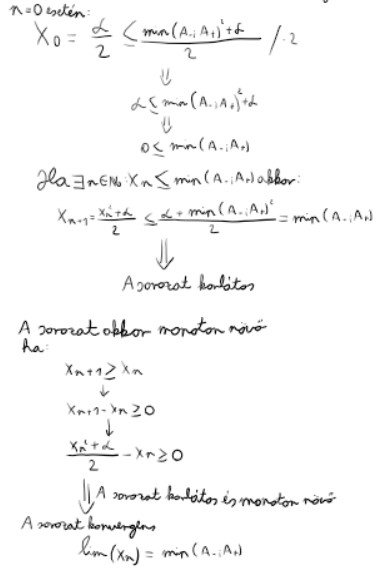 n=0 esetén:
X₀ = α/2 ≤ (min(A₋;A₊)²+α)/2 /·2
⇓
α ≤ min(A₋;A₊)²+α
⇓
0 ≤ min(A₋;A₊)
Ha ∃n∈N₀: Xₙ ≤ min(A₋;A₊) akkor:
Xₙ₊₁ = (Xₙ²+α)/2 ≤ (α+min(A₋;A₊)²)/2 = min(A₋;A₊)
⇓
A sorozat korlátos
A sorozat akkor monoton növő
ha:
Xₙ₊₁ ≥ Xₙ
↓
Xₙ₊₁-Xₙ ≥ 0
↓
(Xₙ²+α)/2 - Xₙ ≥ 0
⇓ A sorozat korlátos és monoton növő
A sorozat konvergens
lim(Xₙ) = min(A₋;A₊)